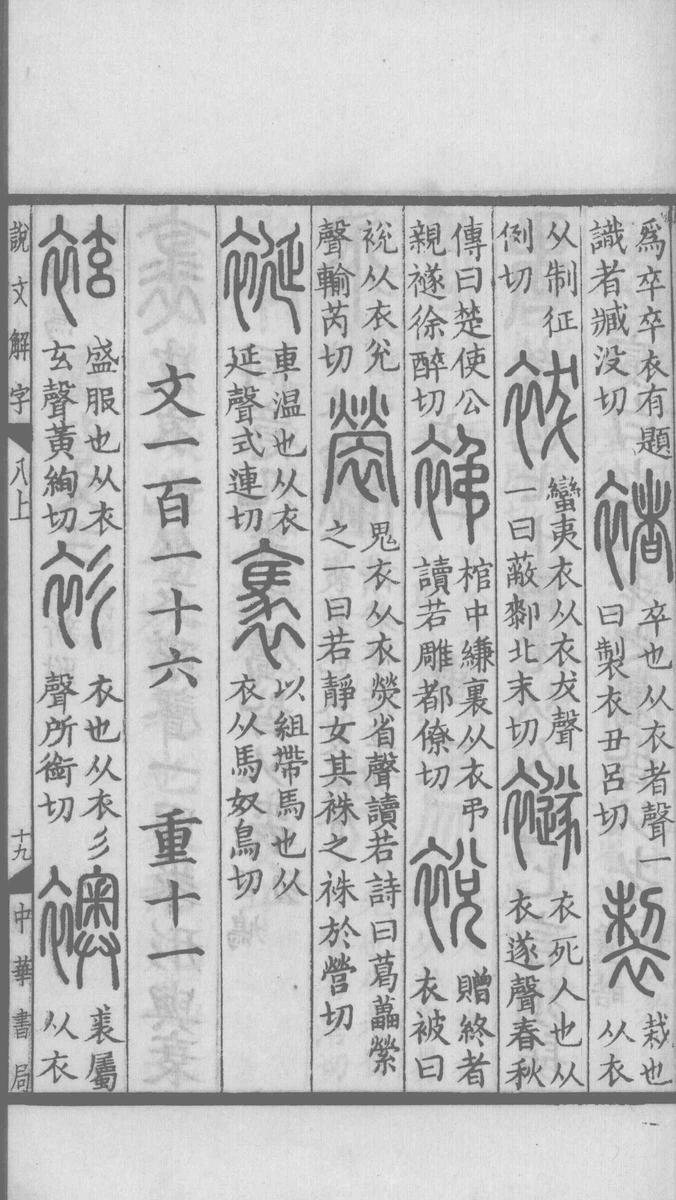 爲卒卒衣有題
識者臧没切
褚
卒也从衣者聲一
曰製衣丑呂切
製
裁也
从衣
从制征
例切
袯
蠻夷衣从衣犮聲
一曰蔽厀北末切
襚
衣死人也从
衣遂聲春秋
傳曰楚使公
親襚徐醉切
祶
棺中縑裏从衣弔
讀若雕都僚切
裞
贈終者
衣被曰
裞从衣兌
聲輸芮切
褮
鬼衣从衣熒省聲讀若詩曰葛藟縈
之一曰若靜女其袾之袾於營切
梴
車温也从衣
延聲式連切
褭
以組帶馬也从
衣从馬奴鳥切
文一百一十六
重十一
袨
盛服也从衣
玄聲黃絢切
衫
衣也从衣彡
聲所銜切
襖
裘屬
从衣
說文解字
八上
十九
中華書局